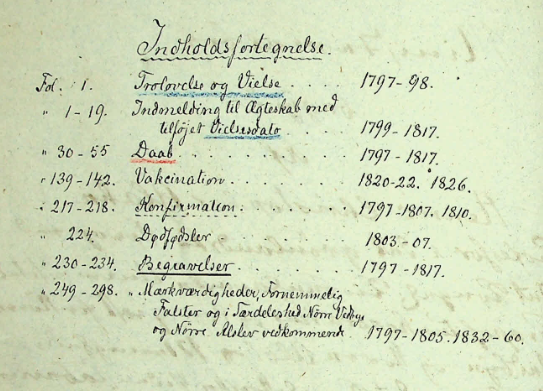 Indholdsfortegnelse.
Fol. 1. Trolovelse og Vielse . . . . 1797-98.
" 1-19. Indmelding til Ægteskab med
tilføjet Vielsesdato . . . 1799-1817.
" 30-55 Daab . . . . . . . . 1797-1817.
" 139-142. Vakcination . . . . . . 1820-22. 1826.
" 217-218. Konfirmation . . . . . . 1797-1807. 1810.
" 224. Dødfødsler . . . . . . 1803.-07.
" 230-234. Begravelser . . . . . . 1797-1817.
" 249-298. " Mærkværdigheder, Fornemmelig
Falster og i Særdeleshed Nørre Vedby
og Nørre Alslev vedkommende. 1797-1805. 1832-60.